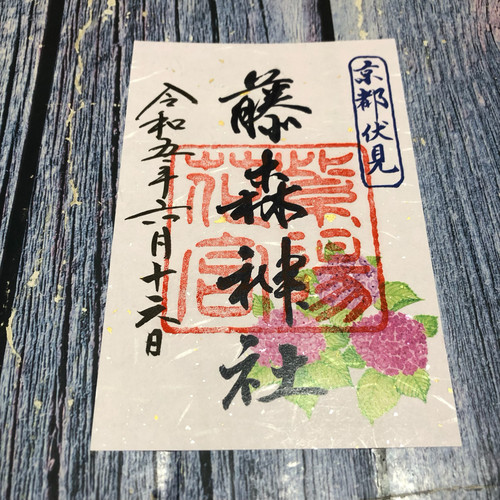 京都伏見
藤森神社
紫陽
花宮
令和五年六月十日